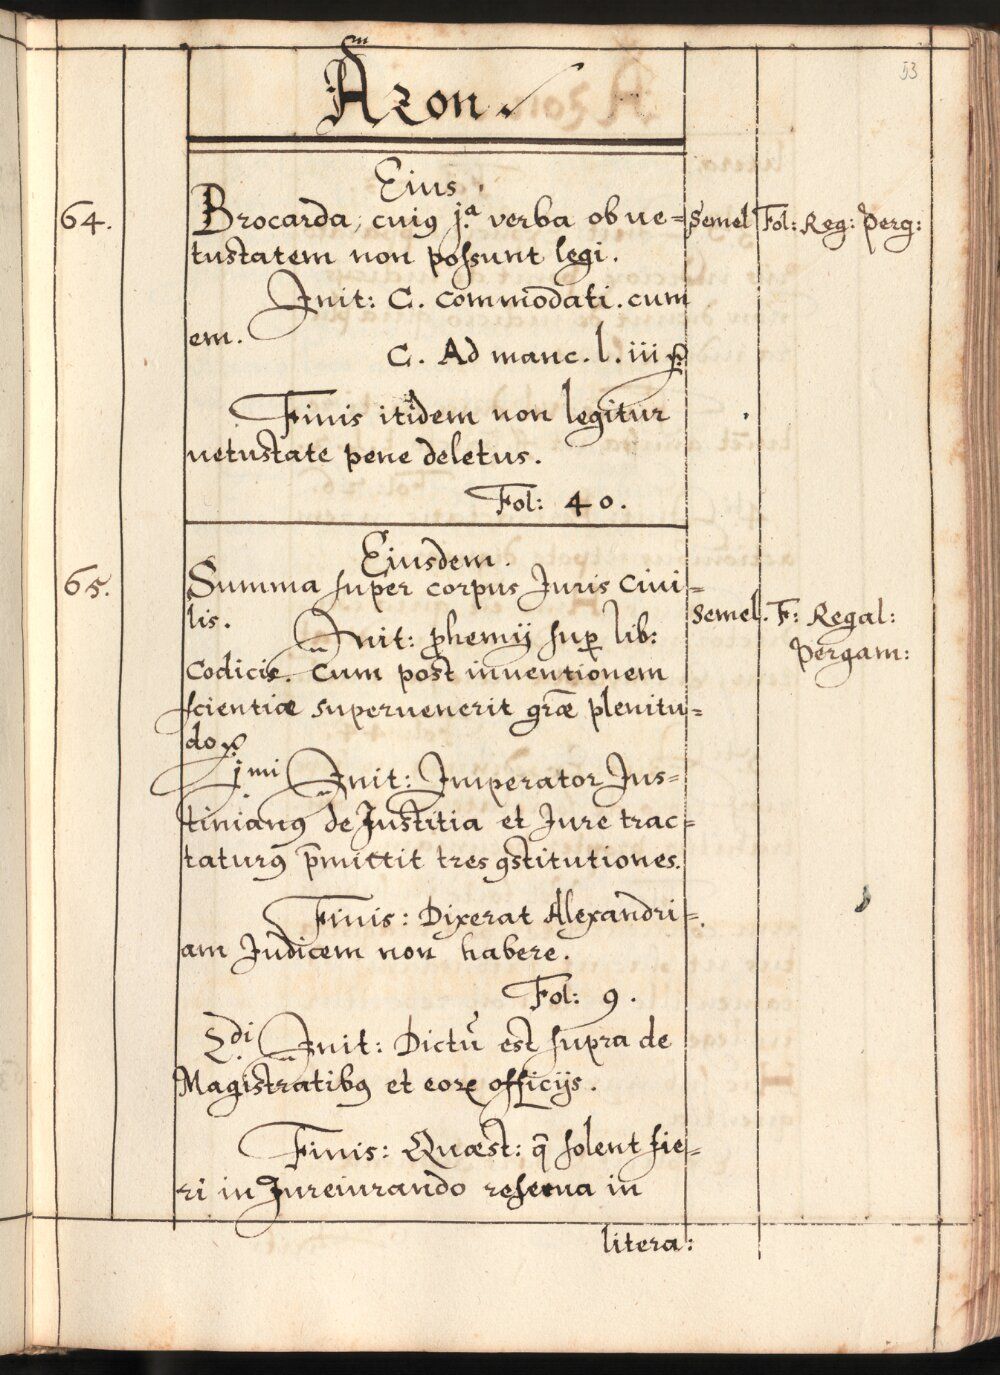 53
Azon
Eius
64. Brocarda, cuiꝰ j.ª verba ob ue= Semel Fol: Reg: Perg:
tustatem non possunt legi.
Init: C. commodati. cum
em.
C. Ad manc. l. iii
Finis itidem non legitur
uetustate pene deletus.
Fol: 40.
Eiusdem.
65. Summa super corpus Juris Ciui=
lis. Semel. F: Regal:
Init: ꝓhemij suꝑ lib: Pergam:
Codicis. Cum post inuentionem
scientiæ superuenerit grãe plenitu=
do
j.mi Init: Imperator Jus=
tinianꝰ de Justitia et Jure trac=
taturꝰ p̃mittit tres ꝯstitutiones.
Finis: Dixerat Alexandri=
am Judicem non habere.
Fol: 9.
2.di Init: Dictũ est supra de
Magistratibꝰ et eoꝝ officijs.
Finis: Quæst: q̃ solent fie=
ri in Jureiurando reserua in
litera: